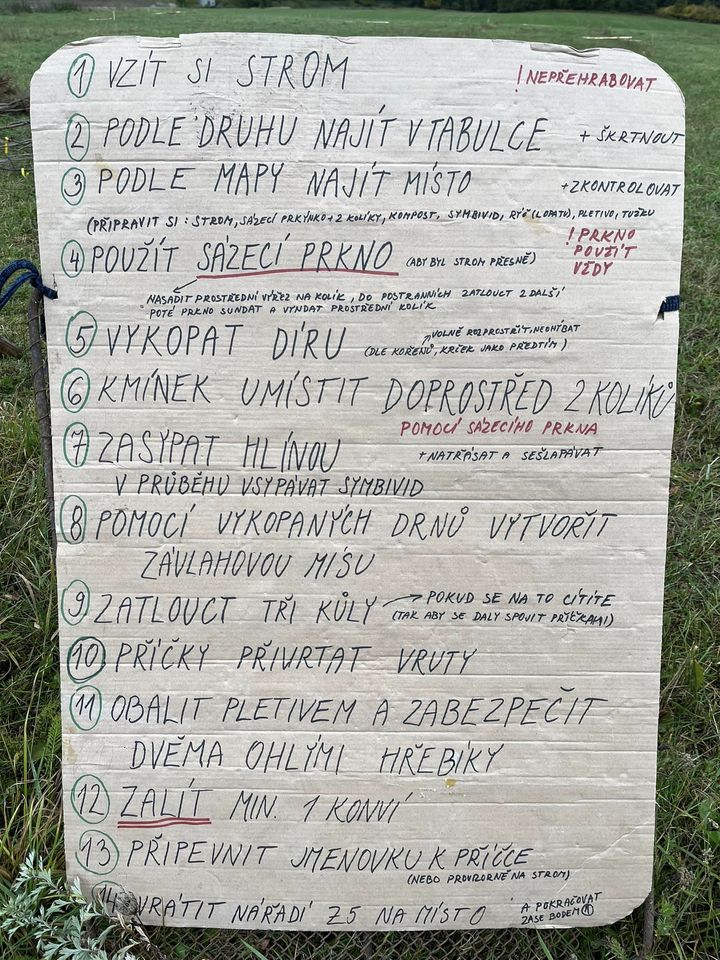 1 VZÍT SI STROM ! NEPŘEHRABOVAT
2 PODLE DRUHU NAJÍT V TABULCE + ŠKRTNOUT
3 PODLE MAPY NAJÍT MÍSTO + ZKONTROLOVAT
(PŘIPRAVIT SI: STROM, SÁZECÍ PRKÝNKO + 2 KOLÍKY, KOMPOST, SYMBIVID, RÝČ (LOPATU), PLETIVO, TUŽKU
4 POUŽÍT SÁZECÍ PRKNO (ABY BYL STROM PŘESNĚ)
! PRKNO
POUŽÍT
VŽDY
NASADIT PROSTŘEDNÍ VÝŘEZ NA KOLÍK, DO POSTRANNÍCH ZATLOUCT 2 DALŠÍ
POTÉ PRKNO SUNDAT A VYNDAT PROSTŘEDNÍ KOLÍK
5 VYKOPAT DÍRU
VOLNĚ ROZPROSTŘÍT, NEOHÝBAT
(DLE KOŘENŮ, KRČEK JAKO PŘEDTÍM)
6 KMÍNEK UMÍSTIT DOPROSTŘED 2 KOLÍKŮ
POMOCÍ SÁZECÍHO PRKNA
7 ZASYPAT HLÍNOU + NATŘÁSAT A SEŠLAPÁVAT
V PRŮBĚHU VSYPÁVAT SYMBIVID
8 POMOCÍ VYKOPANÝCH DRNŮ VYTVOŘIT
ZÁVLAHOVOU MÍSU
9 ZATLOUCT TŘI KŮLY → POKUD SE NA TO CÍTÍTE
(TAK ABY SE DALY SPOJIT PŘÍČKAMI)
10 PŘÍČKY PŘIVRTAT VRUTY
11 OBALIT PLETIVEM A ZABEZPEČIT
DVĚMA OHLÝMI HŘEBÍKY
12 ZALÍT MIN. 1 KONVÍ
13 PŘIPEVNIT JMENOVKU K PŘÍČCE
(NEBO PROVIZORNĚ NA STROM)
14 VRÁTIT NÁŘADÍ Z5 NA MÍSTO A POKRAČOVAT
ZASE BODEM 1